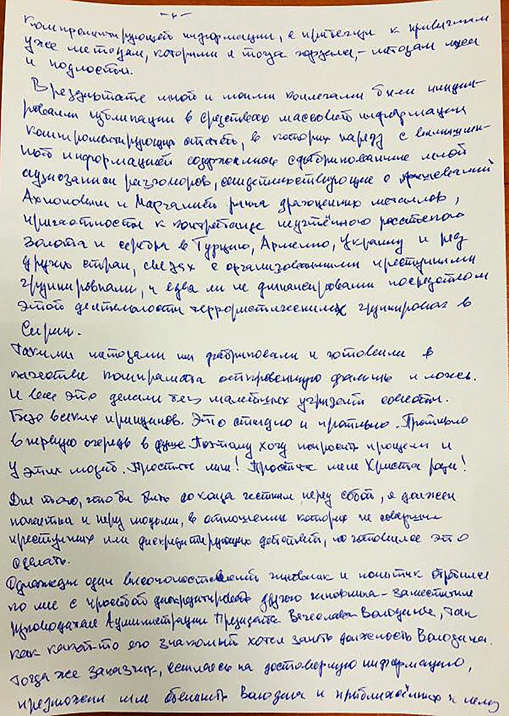 -4-
компрометирующей информации, я прибегал к привычным
уже методам, которыми я тогда гордился, - методам лжи
и подлости.
В результате мной и моими коллегами были иниции-
рованы публикации в средствах массовой информации,
компрометирующие статьи, в которых наряду с вымышлен-
ной информацией содержались сфабрикованные мной
аудиозаписи разговоров, свидетельствующие о
и Маргание рынка драгоценных металлов,
причастности к контрабанде неучтённого россыпного
золота и серебра в Турцию, Армению, Украину и ряд
других стран, связях с организованными преступными
группировками, и едва ли не финансировании посредством
этой деятельности террористических группировок в
Сирии.
Такими методами мы фабриковали и готовили в
качестве компромата откровенную фальшь и ложь.
И все это делали без малейших угрызений совести.
Безо всяких принципов. Это стыдно и противно. Противно
в первую очередь в душе. Поэтому хочу попросить прощения и
у этих людей. Простите меня! Простите меня Христа ради!
Для того, чтобы быть до конца честным перед собой, я должен
покаяться и перед людьми, в отношении которых не совершил
преступных или дискредитирующих действий, но готовился это
сделать.
Однажды один высокопоставленный чиновник и политик обратился
ко мне с просьбой дискредитировать другого чиновника - заместителя
руководителя Администрации Президента Вячеслава Володина, так
как какой-то его знакомый хотел занять должность Володина.
Тогда же заказчик, ссылаясь на достоверную информацию,
предложил мне обвинить Володина и приближённых к нему